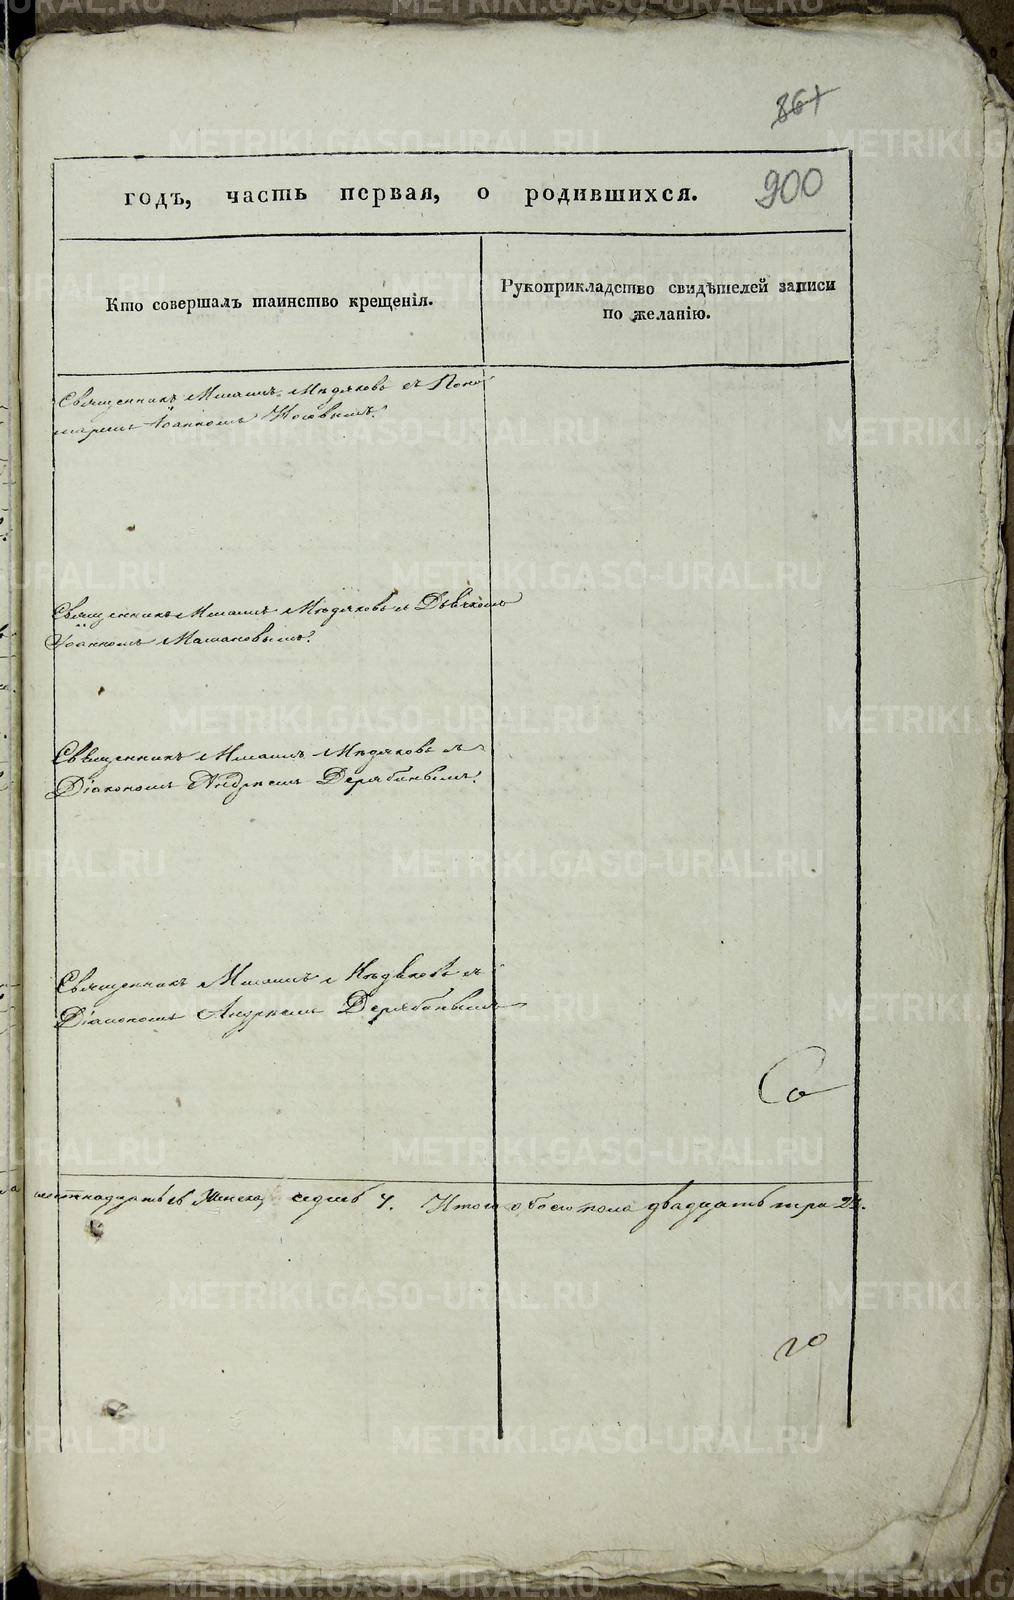 861
годъ, часть первая, о родившихся. 900
Кто совершалъ таинство крещенія.
Рукоприкладство свидѣтелей записи
по желанію.
Священникъ Мѣдяковъ съ Поно-
маремъ Іоанномъ Носовымъ.
Священникъ Мѣдяковъ съ Дьячкомъ
Іоанномъ
Священникъ Мѣдяковъ съ
Діакономъ Андреемъ Дерябинымъ.
Священникъ Мѣдяковъ съ
Діакономъ Андреемъ Дерябинымъ
Со
шестнадцать Женска, седмь 7. Итого обоего пола двадцать три 23.
го
METRIKI.GASO-URAL.RU